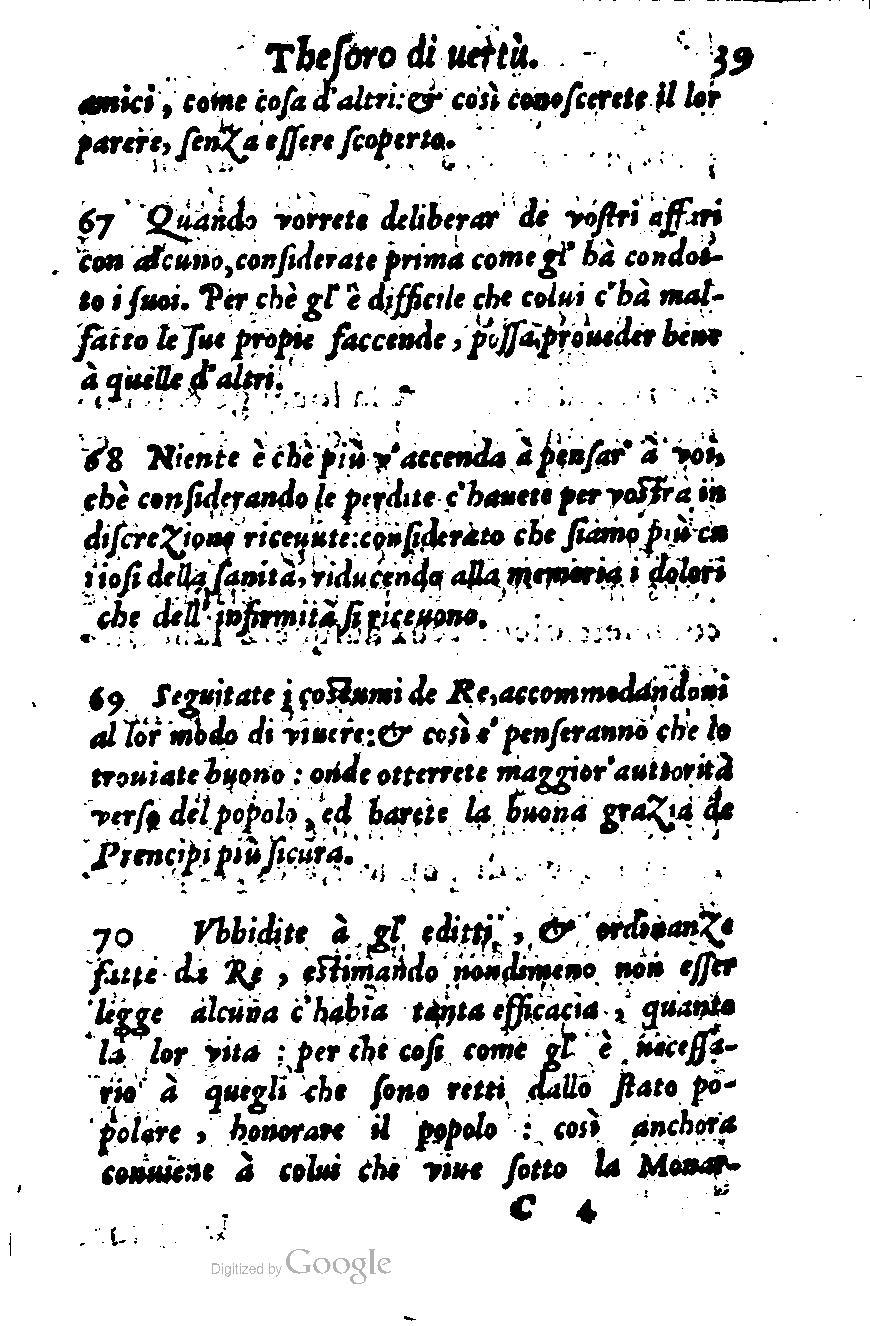 Thesoro di uertù. 39
amici, come cosa d'altri: & così conoscerete il lor
parere, senza essere scoperto.
67 Quando vorrete deliberar de vostri affari
con alcuno, considerate prima come gl' hà condot-
to i suoi. Per chè gl' è difficile che colui c'hà mal-
fatto le sue propie faccende, possa proueder bene
à quelle d'altri.
68 Niente è chè più v'accenda à pensar' à voi,
chè considerando le perdite c'hauete per vostra in
discrezione riceuute: considerato che siamo più cu
riosi della sanità, riducendo alla memoria i dolori
che dell' infirmità si riceuono.
69 Seguitate i costumi de Re, accommodandoui
al lor modo di viuere: & così e' penseranno che lo
trouiate buono: onde otterrete maggior' auttorità
verso del popolo, ed harete la buona grazia de
Prencipi più sicura.
70 Vbbidite à gl' editti, & ordinanze
fatte da Re, estimando nondimeno non esser
legge alcuna c'habia tanta efficacia, quanto
la lor vita: per che cosi come gl' è necessa-
rio à quegli che sono retti dallo stato po-
polare, honorare il popolo: così anchora
conuiene à colui che viue sotto la Monar-
C 4
Digitized by Google